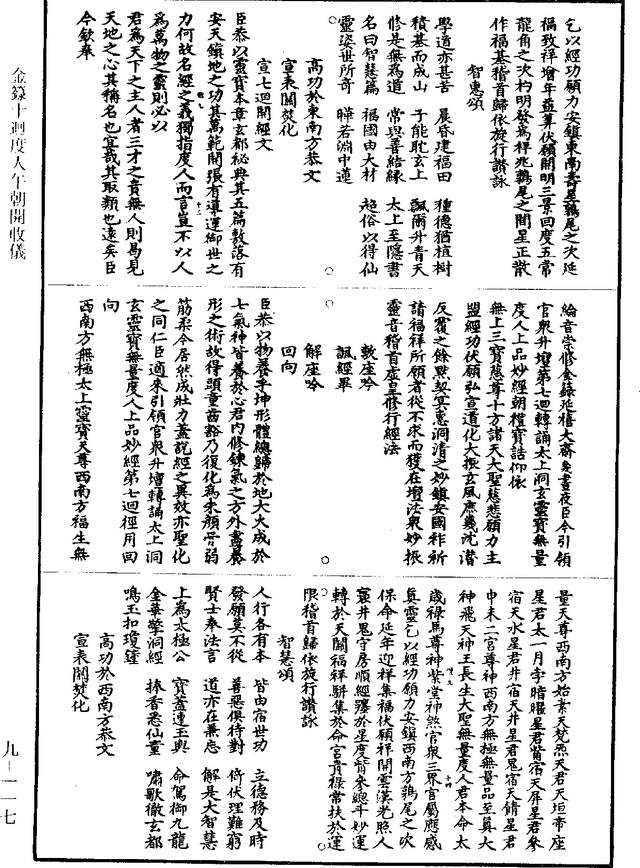 乞以經功願力安鎮東南壽星鶉尾之次延
福致祥增年益算伏願開明三景回度五常
龍角之次杓明發為祥兆鶉尾之間星正散
作福基稽首歸依旋行讚詠
智慧頌
學道亦甚苦　晨昏建福田　種德猶植樹
積基而成山　子能耽玄上　飄爾升青天
修是無為道　常與善結緣　太上至隱書
名曰智慧篇　福國由大材　超俗以得仙
靈姿世所奇　曄若淵中蓮
高功於東南方恭文
宣表關焚化
宣七迴開經文
臣恭以靈寶本章玄都秘典其五篇敷落有
安天鎮地之功其萬範開張有導運御世之
力何故名經之義獨指度人而言豈不以人
為萬物之靈則必以
君為天下之主人者三才之貴無人則曷見
天地之心其稱名也宜哉其取類也遠矣臣
今欽奉
綸音崇修金籙延禧大齋晝夜臣今引領
官衆升壇第七迴轉誦太上洞玄靈寶無量
度人上品妙經朝禮寶誥仰依
無上三寶慈尊十方諸天大聖慈悲願力主
盟經功伏願弘宣道化大振玄風庶幾沈潛
反覆之餘默契冥慧洞清之妙鎮安國祚祈
請福祥所願者從不求而獲在壇法衆妙振
靈音稽首虛皇修行經法
敷座吟
諷經畢
解座吟
回向
臣恭以物養乎坤形體總歸於地大火成於
七氣神皆養於心君內修鍊氣之方外畜養
形之術故得頭童齒豁乃復化為朱顏骨弱
筋柔今居然成壯力蓋說經之異效亦聖化
之同仁臣適來引領官衆升壇轉誦太上洞
玄靈寶無量度人上品妙經第七迴徑用回
向
西南方無極太上靈寶天尊西南方福生無
量天尊西南方始素天梵炁天君天垣帝座
星君太一月孛暗曜星君觜宿天屏星君參
宿天水星君井宿天井星君鬼宿天鑕星君
申未二宮尊神西南方無極無量品至真大
神飛天神王長生大聖無量度人君本命太
歲祿馬尊神紫堂神煞官衆三界官屬應感
真靈乞以經功願力安鎮西南方鶉尾之次
保命延年迎祥集福伏願祥開雲漢光照人
寰井鬼守房順經躔於星度觜參總斗妙運
轉於天關福祥駢集於命宮貴祿常扶於運
限稽首歸依旋行讚詠
智慧頌
人行各有本　皆由宿世功　立德務及時
發願莫不從　善惡俱待對　倚伏理難窮
賢士奉法言　道亦在兼忘　解是大智慧
上為太極公　寶蓋連玉輿　命駕御九龍
金華擎洞經　捧香悉仙童　嘯歌徹玄都
鳴玉扣瓊鐘
高功於西南方恭文
宣表關焚化
金籙十迴度人午朝開收儀
九－一一七